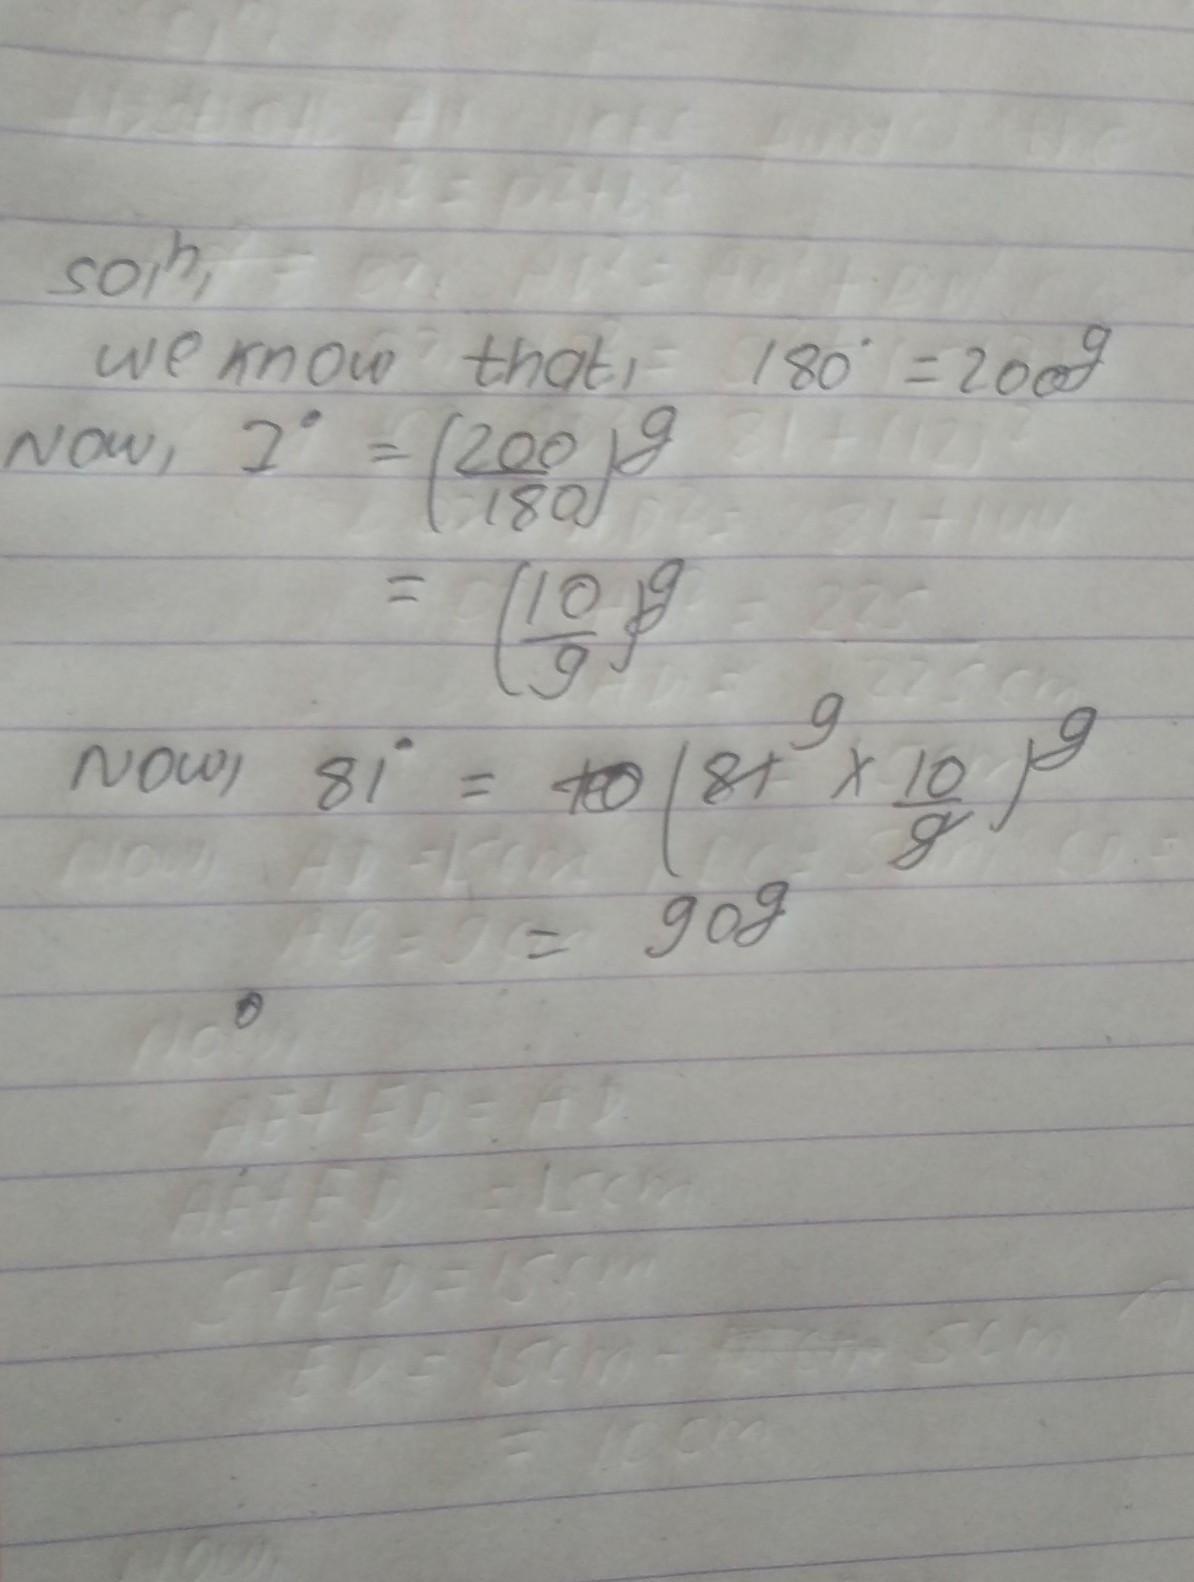 soln,
we know that, 180° = 200g
Now, 1° = (200/180)g
= (10/9)g
Now, 81° = (81 9 × 10/9)g
= 90g